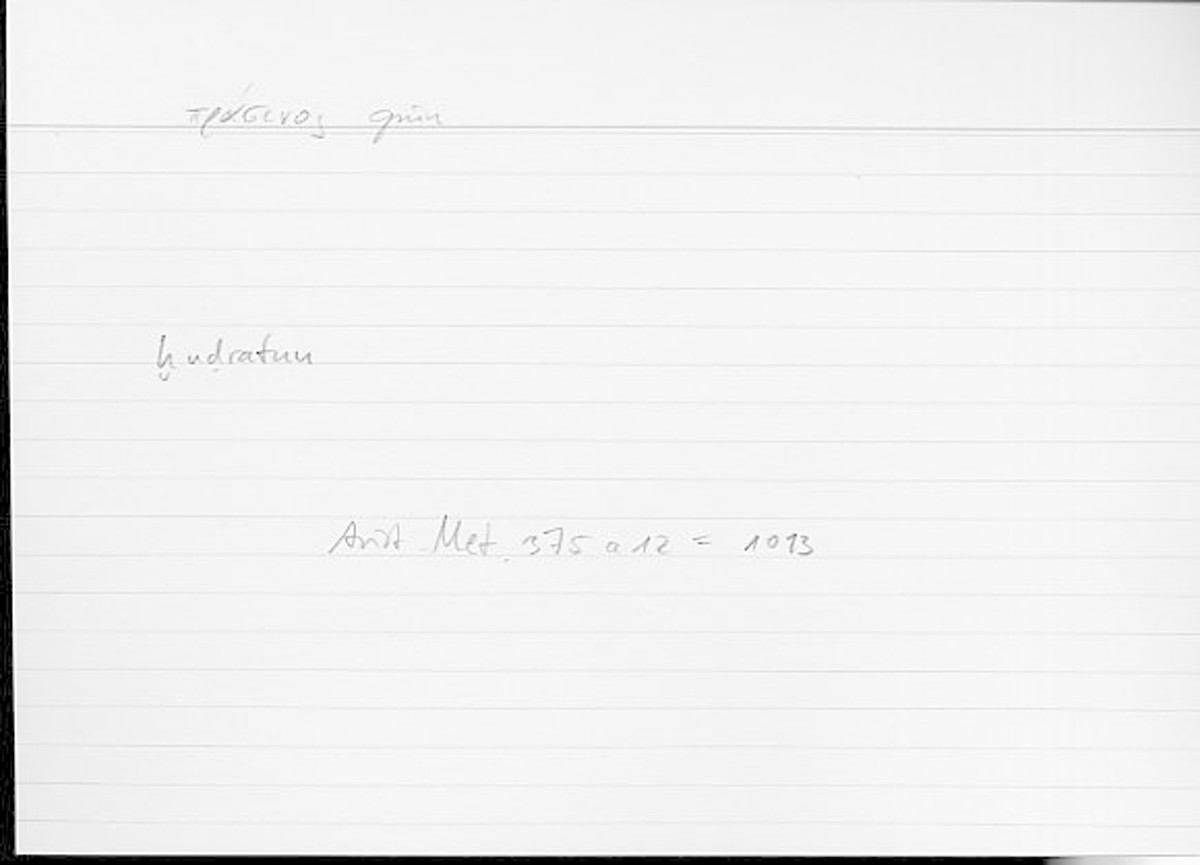 πράσινος grün
ḫuḍratun
Arist. Met. 375 a 12 = 1013